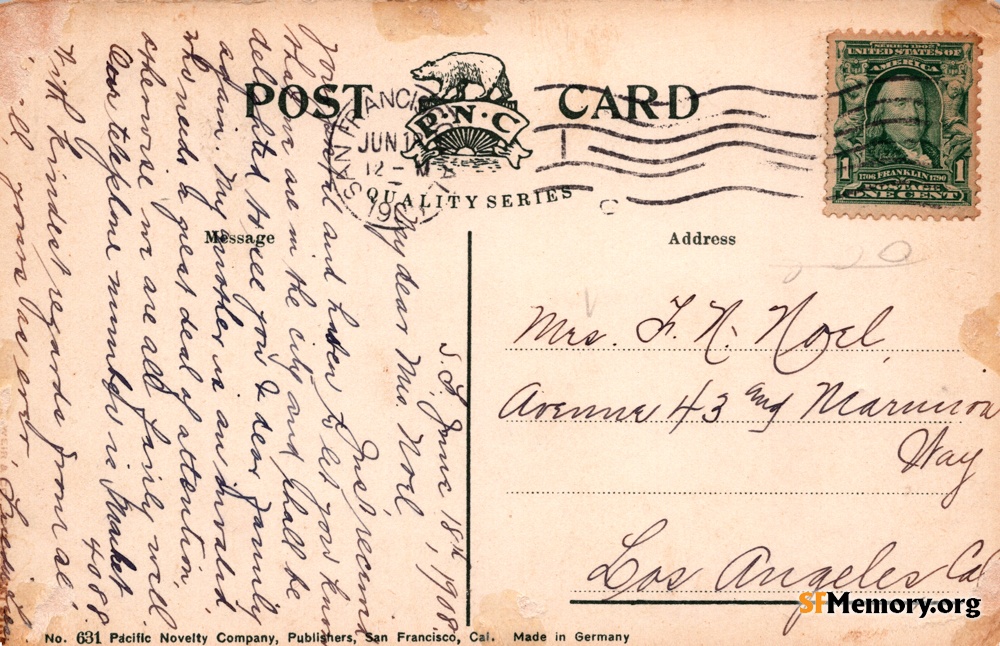 POST CARD
P.N.C
QUALITY SERIES
SAN FRANCI
JUN 1
12-M
190
SERIES 1902
UNITED STATES OF
AMERICA
1 1
1706 FRANKLIN 1790
POSTAGE
ONE CENT
Message
Address
S. F. June 18th, 1908.
My dear Mrs. Noel
Just received
your and hasten to let you know
that we are in the city and shall be
delighted to see you & dear family
again. My mother is an invalid
who needs a great deal of attention,
otherwise we are all fairly well.
Our telephone number is Market
4088
With kindest regards from all
yours as ever,
Mrs. F. N. Noel
Avenue 43 and
Way
Los Angeles Cal
No. 631 Pacific Novelty Company, Publishers, San Francisco, Cal. Made in Germany
SFMemory.org